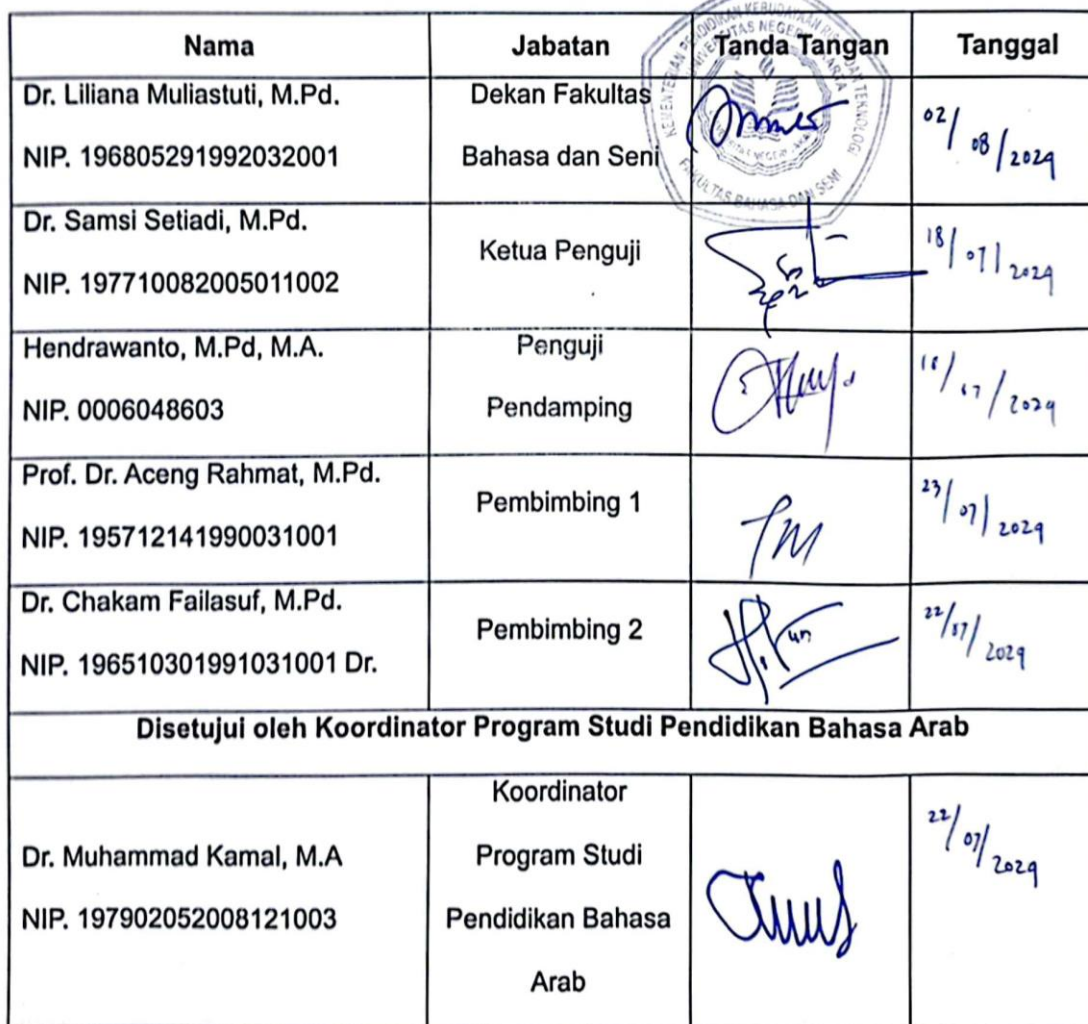 Nama Jabatan Tanda Tangan Tanggal
Dr. Liliana Muliastuti, M.Pd.
NIP. 196805291992032001
Dekan Fakultas
Bahasa dan Seni
KEMENTERIAN PENDIDIKAN KEBUDAYAAN RISET DAN TEKNOLOGI
UNIVERSITAS NEGERI JAKARTA
FAKULTAS BAHASA DAN SENI
02/08/2024
Dr. Samsi Setiadi, M.Pd.
NIP. 197710082005011002
Ketua Penguji
18/07/2024
Hendrawanto, M.Pd, M.A.
NIP. 0006048603
Penguji
Pendamping
/2024
Prof. Dr. Aceng Rahmat, M.Pd.
NIP. 195712141990031001
Pembimbing 1
23/07/2024
Dr. Chakam Failasuf, M.Pd.
NIP. 196510301991031001 Dr.
Pembimbing 2
22/07/2024
Disetujui oleh Koordinator Program Studi Pendidikan Bahasa Arab
Dr. Muhammad Kamal, M.A
NIP. 197902052008121003
Koordinator
Program Studi
Pendidikan Bahasa
Arab
22/07/2024